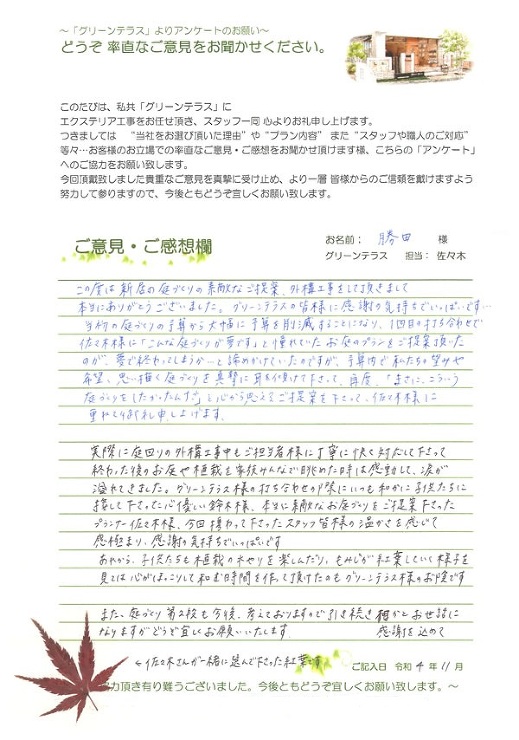 ～「グリーンテラス」よりアンケートのお願い～
どうぞ 率直なご意見をお聞かせください。
このたびは、私共「グリーンテラス」に
エクステリア工事をお任せ頂き、スタッフ一同 心よりお礼申し上げます。
つきましては “当社をお選び頂いた理由”や“プラン内容” また“スタッフや職人のご対応”
等々…お客様のお立場での率直なご意見・ご感想をお聞かせ頂けます様、こちらの「アンケート」
へのご協力をお願い致します。
今回頂戴致しました貴重なご意見を真摯に受け止め、より一層 皆様からのご信頼を戴けますよう
努力して参りますので、今後ともどうぞ宜しくお願い致します。
お名前： 勝田 様
ご意見・ご感想欄
グリーンテラス 担当： 佐々木
この度は新居の庭づくりの素敵なご提案、外構工事をして頂きまして
本当にありがとうございました。グリーンテラスの皆様に感謝の気持ちでいっぱいです…
当初の庭づくりの予算から大幅に予算を削減することになり、1回目の打ち合わせで
佐々木様に「こんな庭づくりが夢です」と憧れていたお庭のプランをご提案頂いた
のが、夢で終わってしまうか…と諦めかけていたのですが、予算内で私たちの望みや
希望、思い描く庭づくりを真摯に耳を傾けて下さって、再度、「まさに、こういう
庭づくりをしたかったんです」と心から思えるご提案を下さって、佐々木様に
重ねてお礼申し上げます。
実際に庭回りの外構工事中もご担当者様に丁寧に快く対応して下さって
終わった後のお庭や植栽を家族みんなで眺めた時は感動して、涙が
溢れてきました。グリーンテラス様の打ち合わせの際にいつも和かに子供たちに
接して下さった心優しい鈴木様、本当に素敵なお庭づくりをご提案下さった
プランナー佐々木様、今回携わって下さったスタッフ皆様の温かさを感じて
感極まり、感謝の気持ちでいっぱいです
あれから、子供たちも植栽の水やりを楽しんだり、もみじが紅葉していく様子を
見ては心がほっこりして和む時間を作って頂けたのもグリーンテラス様のお陰です
また、庭づくり 第2段も今後、考えておりますので引き続き 何かとお世話に
なりますがどうぞ宜しくお願いいたします 感謝を込めて
佐々木さんが一緒に選んで下さった紅葉です
ご記入日 令和 4 年 11 月
協力頂き有り難うございました。今後ともどうぞ宜しくお願い致します。～